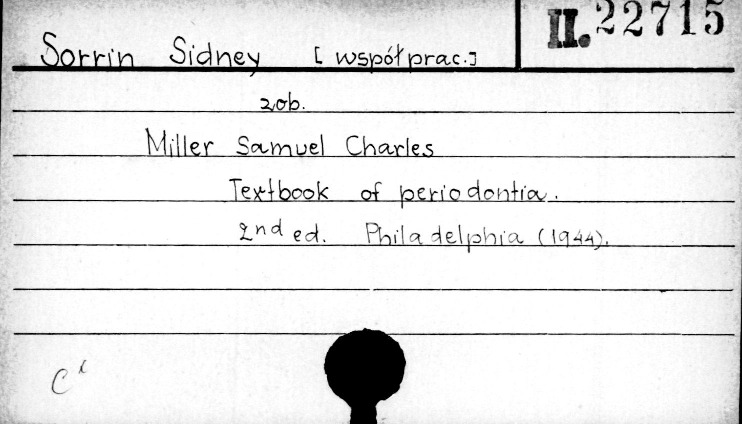 Sorrin Sidney [współprac.] II. 22715
zob.
Miller Samuel Charles
Textbook of periodontia.
2nd ed. Philadelphia (1944).